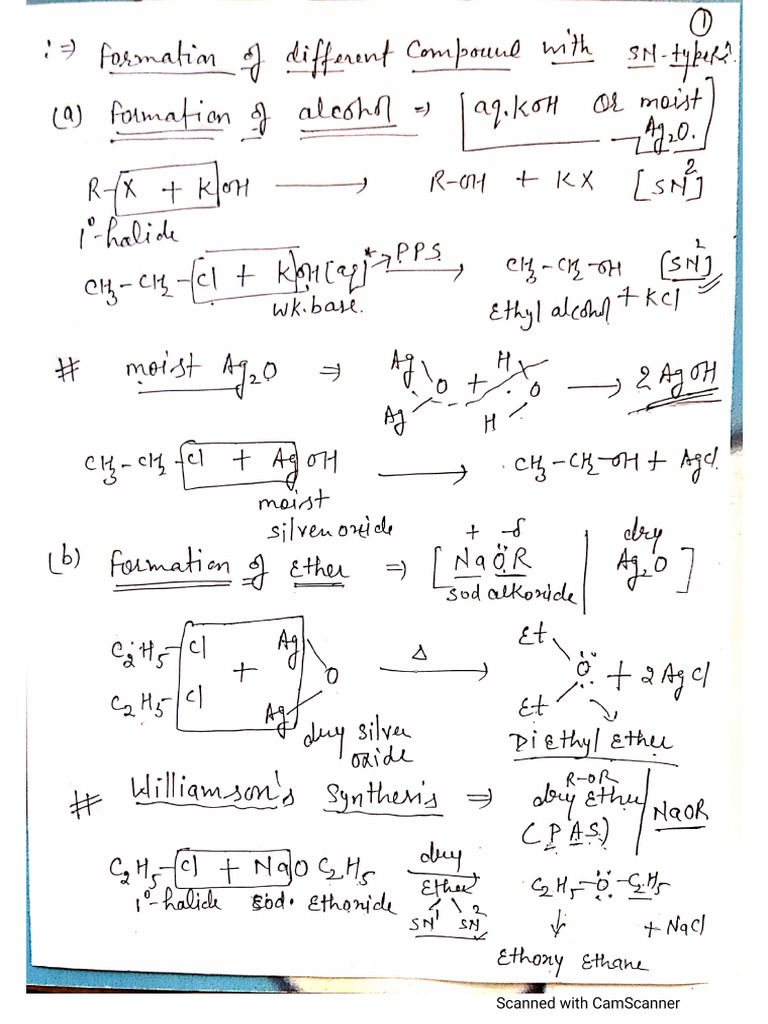 ①
:⇒ Formation of different Compound with SN-types:
(a) Formation of alcohol ⇒ [aq.KOH or moist Ag₂O.]
R-X + KOH ⟶ R-OH + KX [SN²]
1°-halide
CH₃-CH₂-Cl + KOH[aq]* → PPS ⟶ CH₃-CH₂-OH [SN²]
wk.base. Ethyl alcohol + KCl
# moist Ag₂O ⇒ Ag Ag O + H H O ⟶ 2AgOH
CH₃-CH₂-Cl + AgOH ⟶ CH₃-CH₂-OH + AgCl
moist
silver oxide
(b) Formation of Ether ⇒ [NaÖR | dry Ag₂O]
+ -δ
sod alkoxide
C₂H₅-Cl + Ag Ag O Δ ⟶ Et Et Ö + 2AgCl
C₂H₅-Cl
dry silver oxide
Diethyl Ether
# Williamson's Synthesis ⇒ dry Ether | NaOR
R-OR
(P.A.S.)
C₂H₅-Cl + NaOC₂H₅ dry Ether ⟶ C₂H₅-Ö-C₂H₅
1°-halide Sod. Ethoxide SN¹ SN² + NaCl
Ethoxy Ethane
Scanned with CamScanner